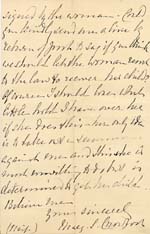 signed by the woman - Could
you kindly send me a line by
return of post to say if you think
we should let the woman come
to the law to recover her child?
of course I should lose what
little hold I have over her
if she does this - her only idea
is to take out a summons
against me and this she is
most unwilling to do but is
determined to get her child.
Believe me
Yours sincerely
Mary S.
(Miss)